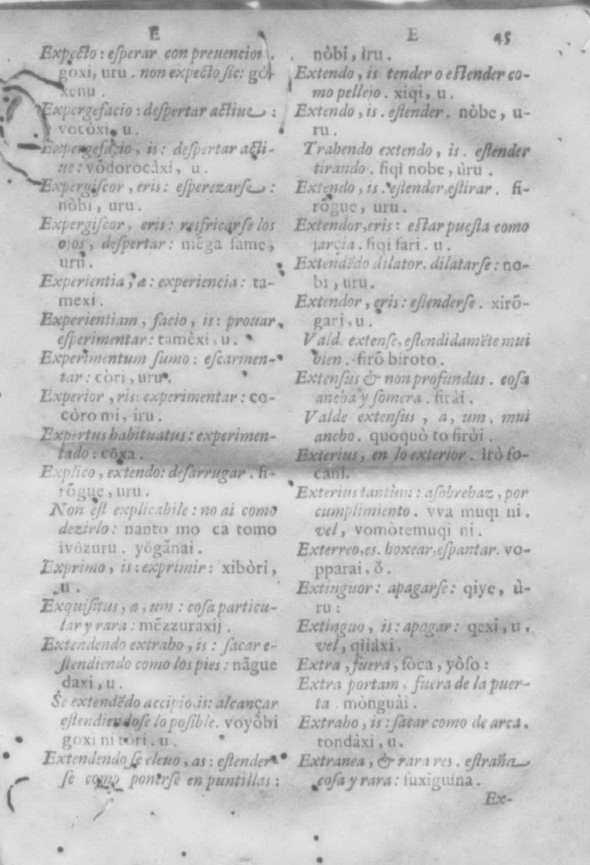 E
Expecto: esperar con preuencion.
goxi, uru. non expecto sic: goi
xenu.
Expergefacio: despertar actiue:
vocòxi, u.
Expergefacio, is: despertar acti-
ue: vôdorocàxi, u.
Expergiscor, eris: esperezarse:
nòbi, uru.
Expergiscor, eris: refricarse los
ojos, despertar: mèga same,
uru.
Experientia, a: experiencia: ta-
mexi.
Experientiam, facio, is: prouar,
esperimentar: tamèxi, u.
Experimentum sumo: escarmen-
tar: còri, uru.
Experior, ris: experimentar: co-
còro mi, iru.
Expertus habituatus: experimen-
tado: còxa.
Explico, extendo: desarrugar. fi-
rōgue, uru.
Non est explicabile: no ai como
dezirlo: nanto mo ca tomo
ivòzuru. yōgānai.
Exprimo, is: exprimir: xibòri,
u.
Exquisitus, a, um: cosa particu-
lar y rara: mēzzuraxij.
Extendendo extraho, is: sacar e-
stendiendo como los pies: nāgue
daxi, u.
Se extendēdo accipio, is: alcançar
estendiendose lo posible. voyōbi
goxi ni tori. u.
Extendendo se eleuo, as: estender
se como ponerse en puntillas:
E 45
nòbi, iru.
Extendo, is tender o estender co-
mo pellejo. xiqi, u.
Extendo, is. estender. nòbe, u-
ru.
Trahendo extendo, is. estender
tirando. fiqi nobe, ùru.
Extendo, is. estender, estirar. fi-
rōgue, uru.
Extendor, eris: estar puesta como
jarçia. fiqi fari. u.
Extendēdo dilator. dilatarse: no-
bi, uru.
Extendor, eris: estenderse. xirō-
gari, u.
Vald. extense, estendidamēte mui
bien. firō biroto.
Extensus & non profundus. cosa
ancha y somera. firài.
Valde extensus, a, um, mui
ancho. quoquò to firòi.
Exterius, en lo exterior. ìrò fo-
cani.
Exterius tantùm: asobrehaz, por
cumplimiento. vva muqi ni.
vel, vomòtemuqi ni.
Exterreo, es. hoxear, espantar. vo-
pparai, ō.
Extinguor: apagarse: qiye, ù-
ru:
Extinguo, is: apagar: qexi, u,
vel, qijàxi.
Extra, fuera, fòca, yòso:
Extra portam, fuera de la puer-
ta. mònguài.
Extraho, is: sacar como de arca.
tondàxi, u.
Extranea, & rara res. estraña
cosa y rara: fuxiguina.
Ex-